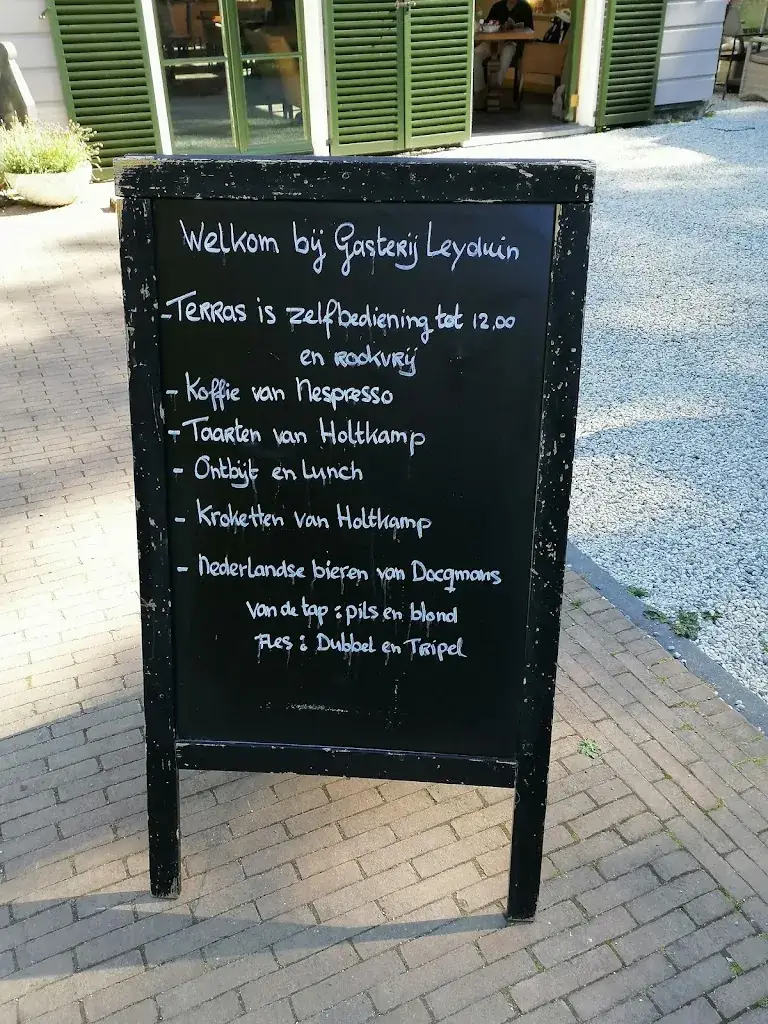 Welkom bij Gasterij Leyduin
- Terras is zelfbediening tot 12.00
en rookvrij
- Koffie van Nespresso
- Taarten van Holtkamp
- Ontbijt en Lunch
- Kroketten van Holtkamp
- Nederlandse bieren van Dacqmans
Van de tap : pils en blond
Fles : Dubbel en Tripel